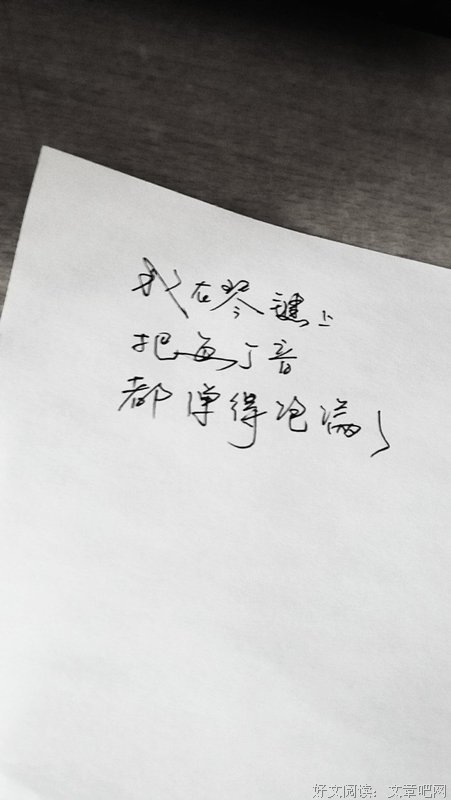 我在琴键上
把每个音
都弹得饱满了
好文阅读：文章吧网